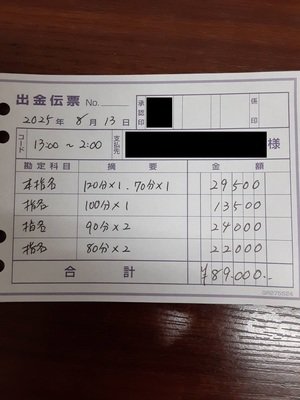 出金伝票 No.
承認印
係印
2025年 8月 13日
コード 13:00〜2:00 支払先 様
勘定科目 摘要 金額
本指名 120分×1、70分×1 29500
指名 100分×1 13500
指名 90分×2 24000
指名 80分×2 22000
合計 ¥89.000.-